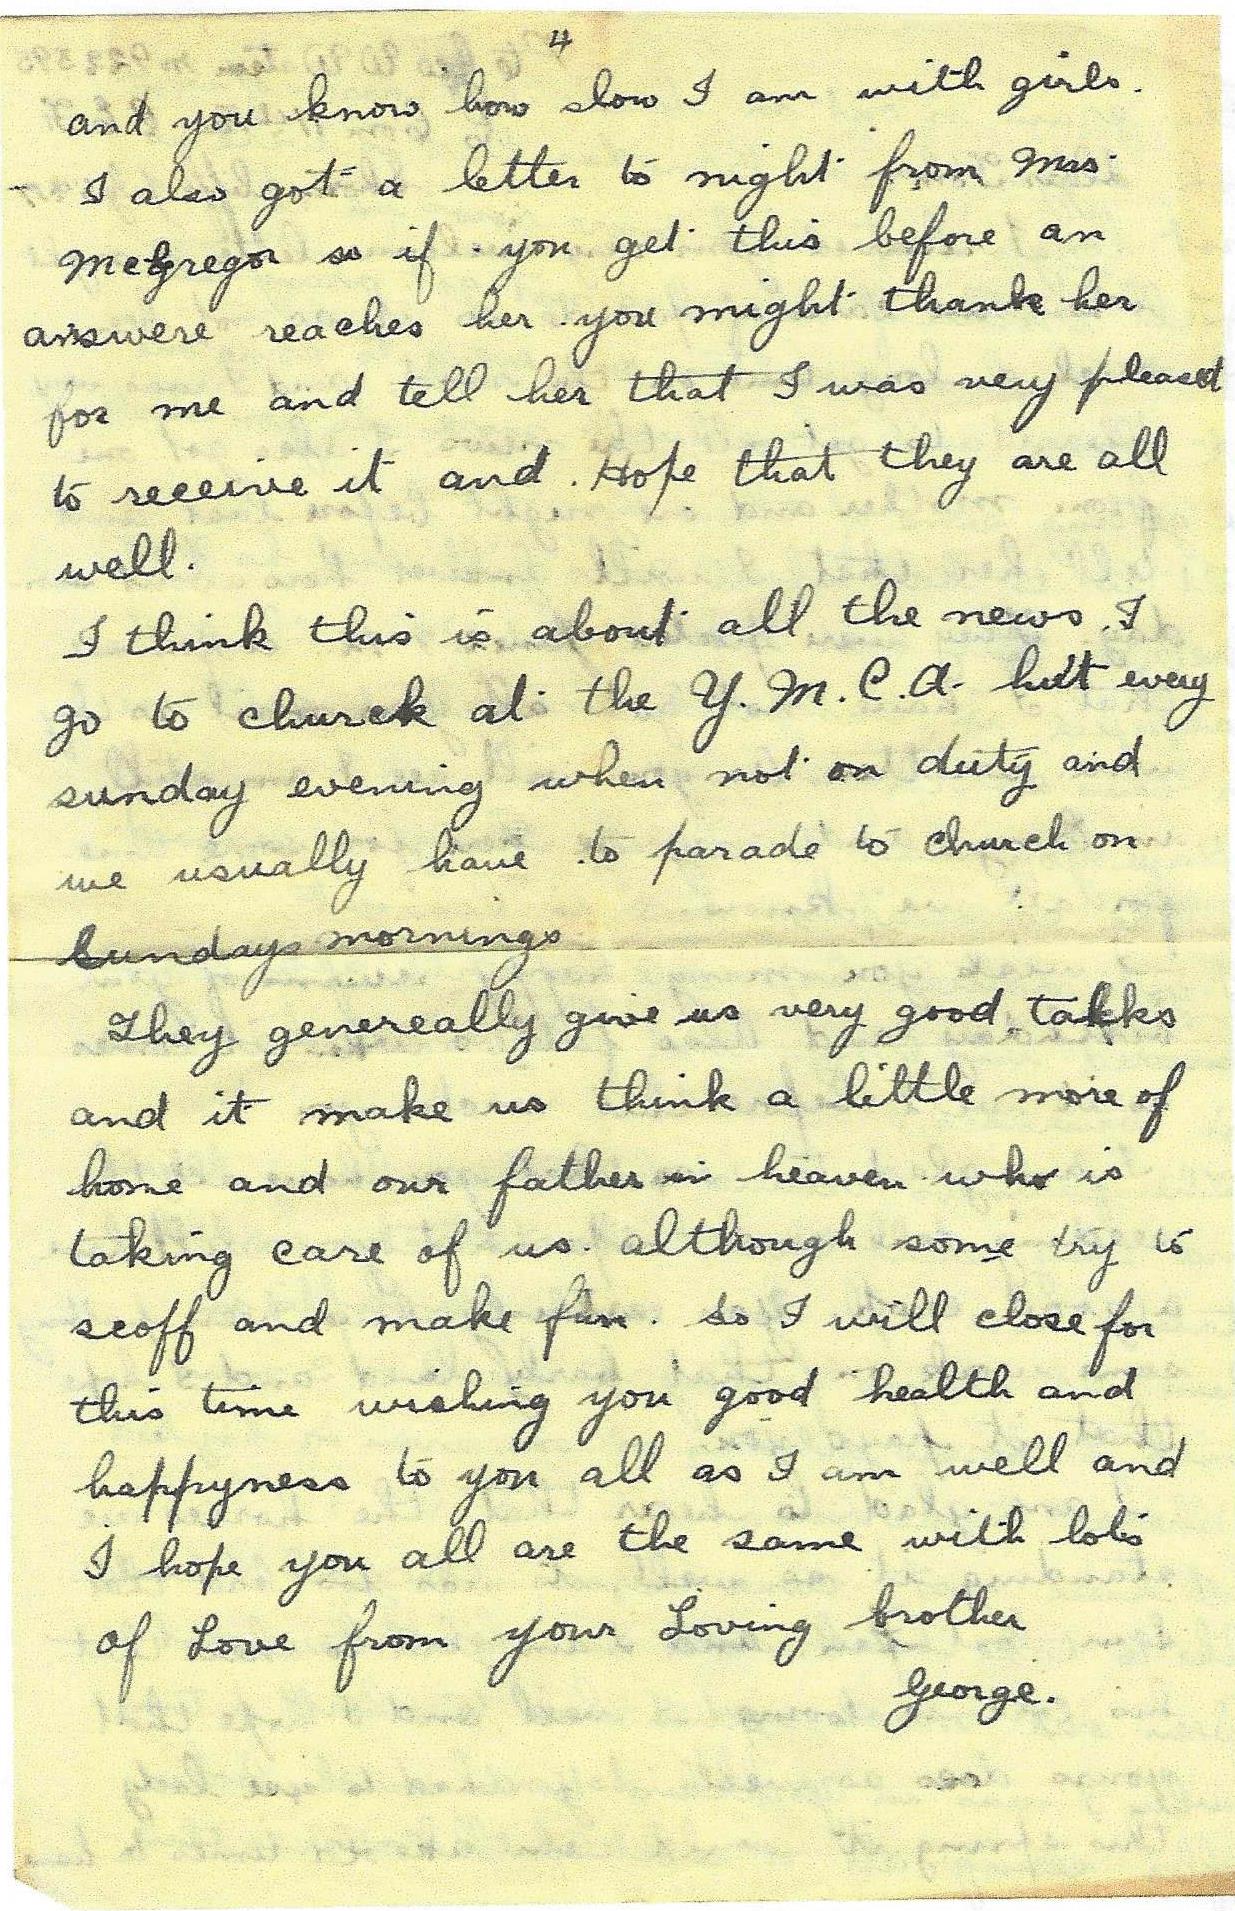 4
and you know how slow I am with girls.
I also got a letter to night from Mrs
McGregor so if you get this before an
answere reaches her you might thank her
for me and tell her that I was very pleased
to receive it and Hope that they are all
well.
I think this is about all the news. I
go to church at the Y.M.C.A. hut every
sunday evening when not on duty and
we usually have to parade to church on
Sundays mornings
They genereally give us very good talks
and it make us think a little more of
home and our father in heaven who is
taking care of us. although some try to
scoff and make fun. So I will close for
this time wishing you good health and
happyness to you all as I am well and
I hope you all are the same with lots
of Love from your Loving brother
George.